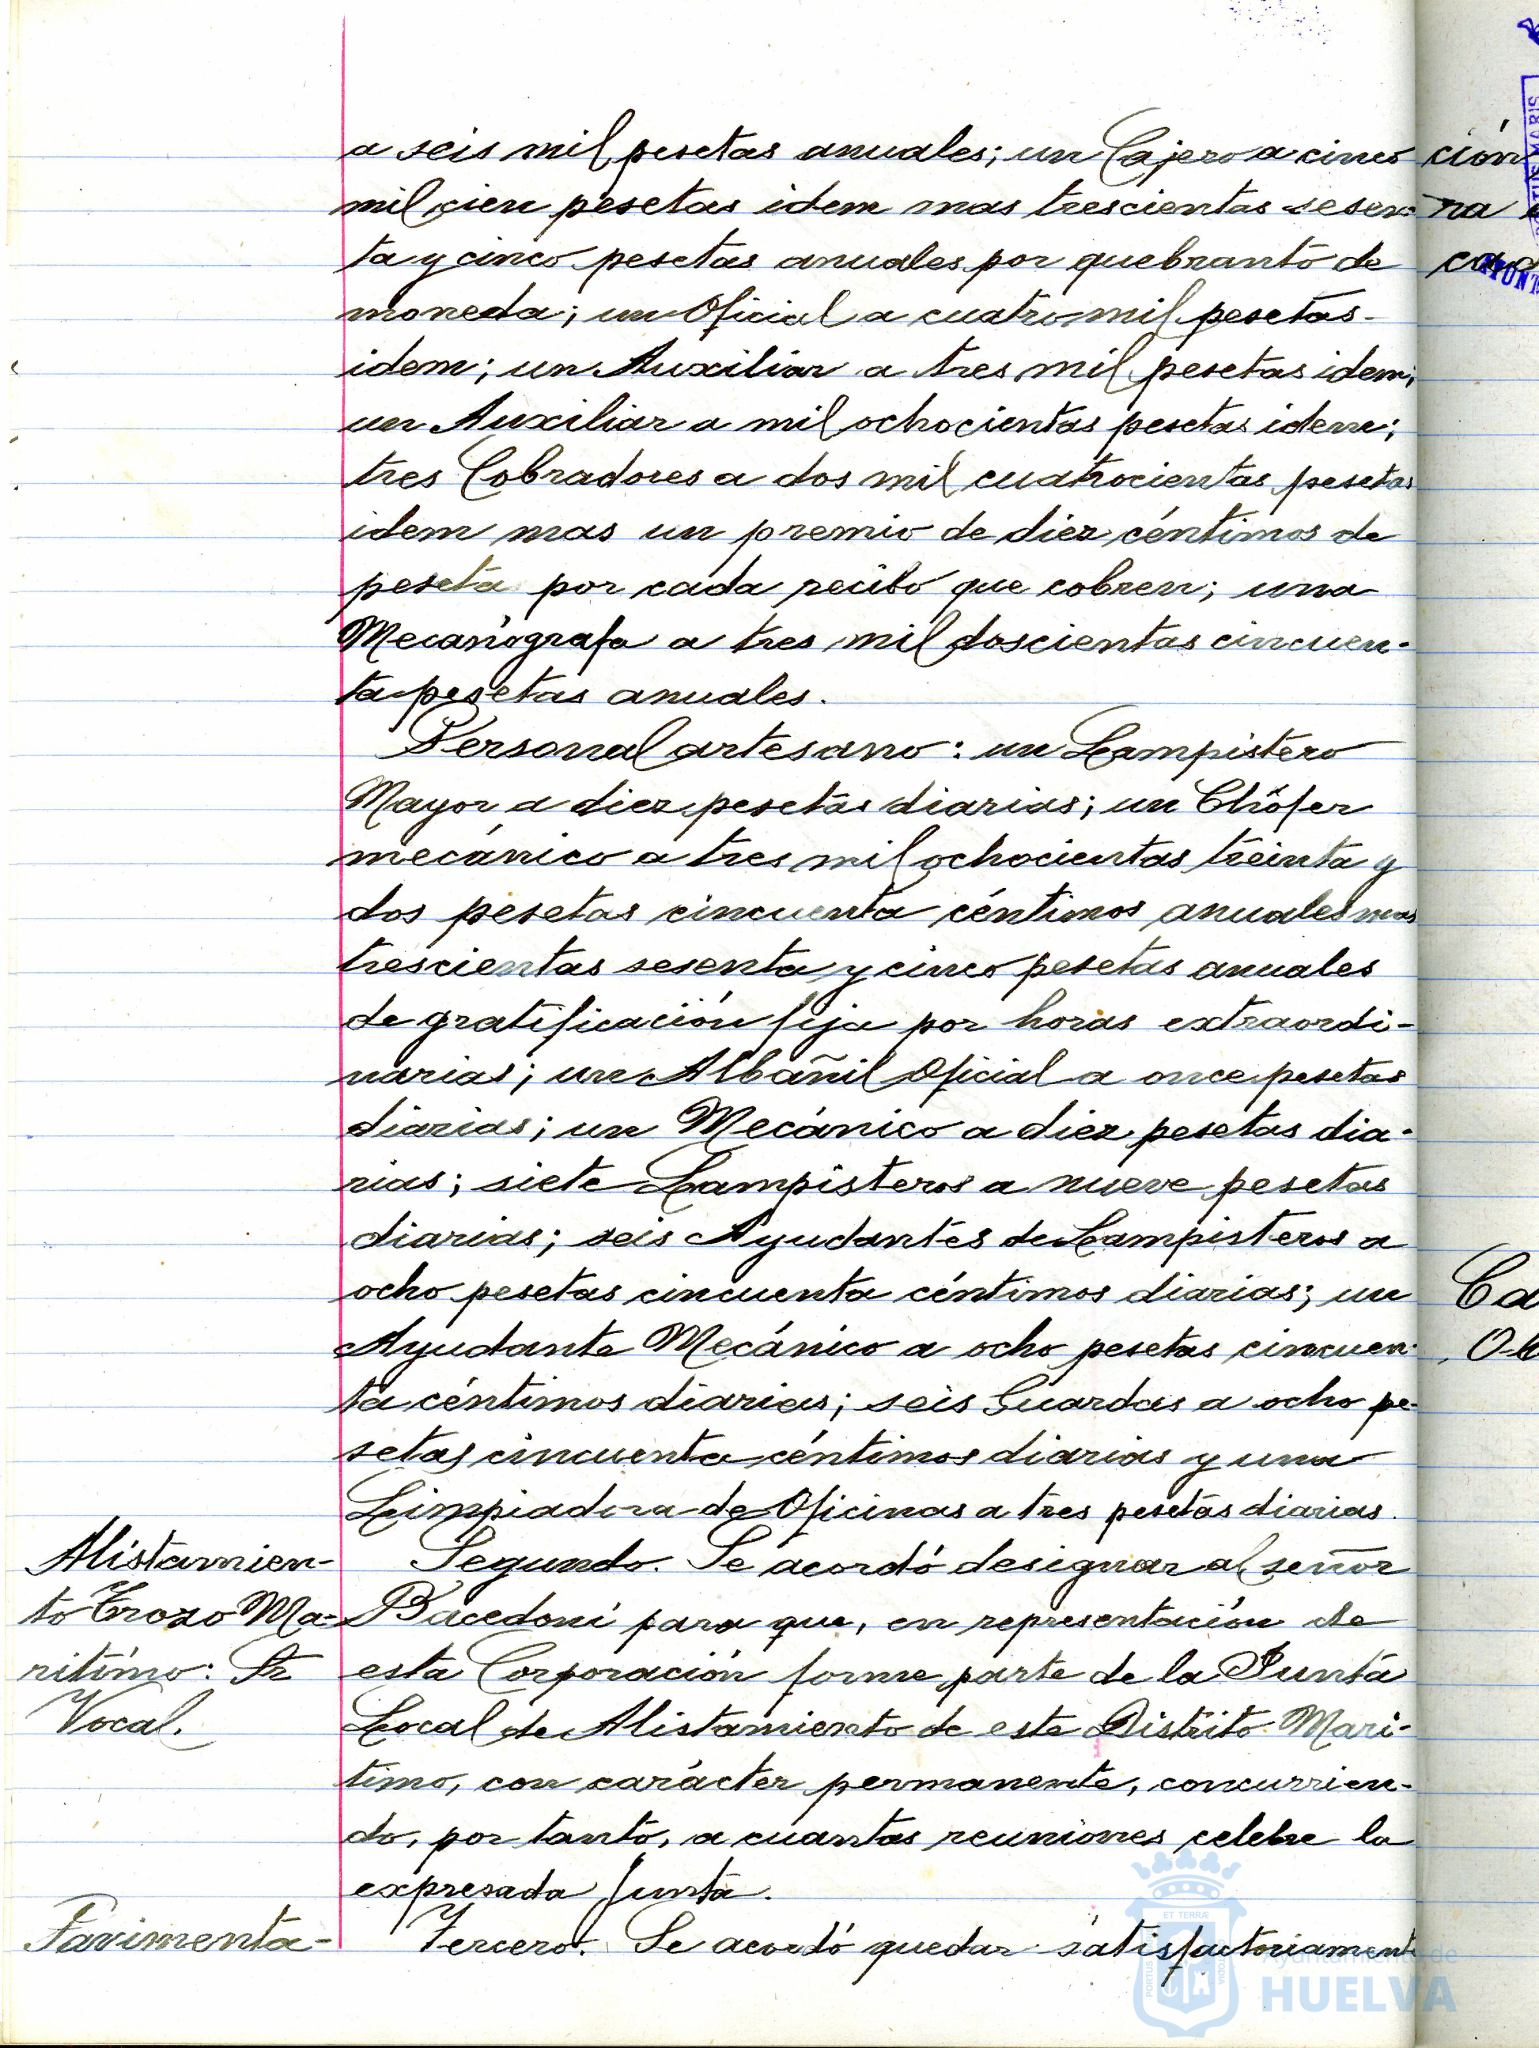 a seis mil pesetas anuales; un Cajero a cinco
mil cien pesetas idem mas trescientas sesen-
ta y cinco pesetas anuales por quebranto de
moneda; un Oficial a cuatro mil pesetas
idem; un Auxiliar a tres mil pesetas idem;
un Auxiliar a mil ochocientas pesetas idem;
tres Cobradores a dos mil cuatrocientas pesetas
idem mas un premio de diez céntimos de
peseta por cada recibo que cobren; una
Mecanógrafa a tres mil doscientas cincuen-
ta pesetas anuales.
Personal artesano: un Lampistero
Mayor a diez pesetas diarias; un Chófer
mecánico a tres mil ochocientas treinta y
dos pesetas cincuenta céntimos anuales mas
trescientas sesenta y cinco pesetas anuales
de gratificación fija por horas extraordi-
narias; un Albañil Oficial a once pesetas
diarias; un Mecánico a diez pesetas dia-
rias; siete Lampisteros a nueve pesetas
diarias; seis Ayudantes de Lampisteros a
ocho pesetas cincuenta céntimos diarias; un
Ayudante Mecánico a ocho pesetas cincuen-
ta céntimos diarias; seis Guardas a ocho pe-
setas cincuenta céntimos diarias y una
Limpiadora de Oficinas a tres pesetas diarias.
Alistamien-
to Trozo Ma-
ritimo: Sr
Vocal.
Segundo. Se acordó designar al señor
Bacedoni para que, en representación de
esta Corporación forme parte de la Junta
Local de Alistamiento de este Distrito Mari-
timo, con carácter permanente, concurrien-
do, por tanto, a cuantas reuniones celebre la
expresada Junta.
Pavimenta-
Tercero. Se acordó quedar satisfactoriament
Ayuntamiento de
HUELVA
ción
na
Ca